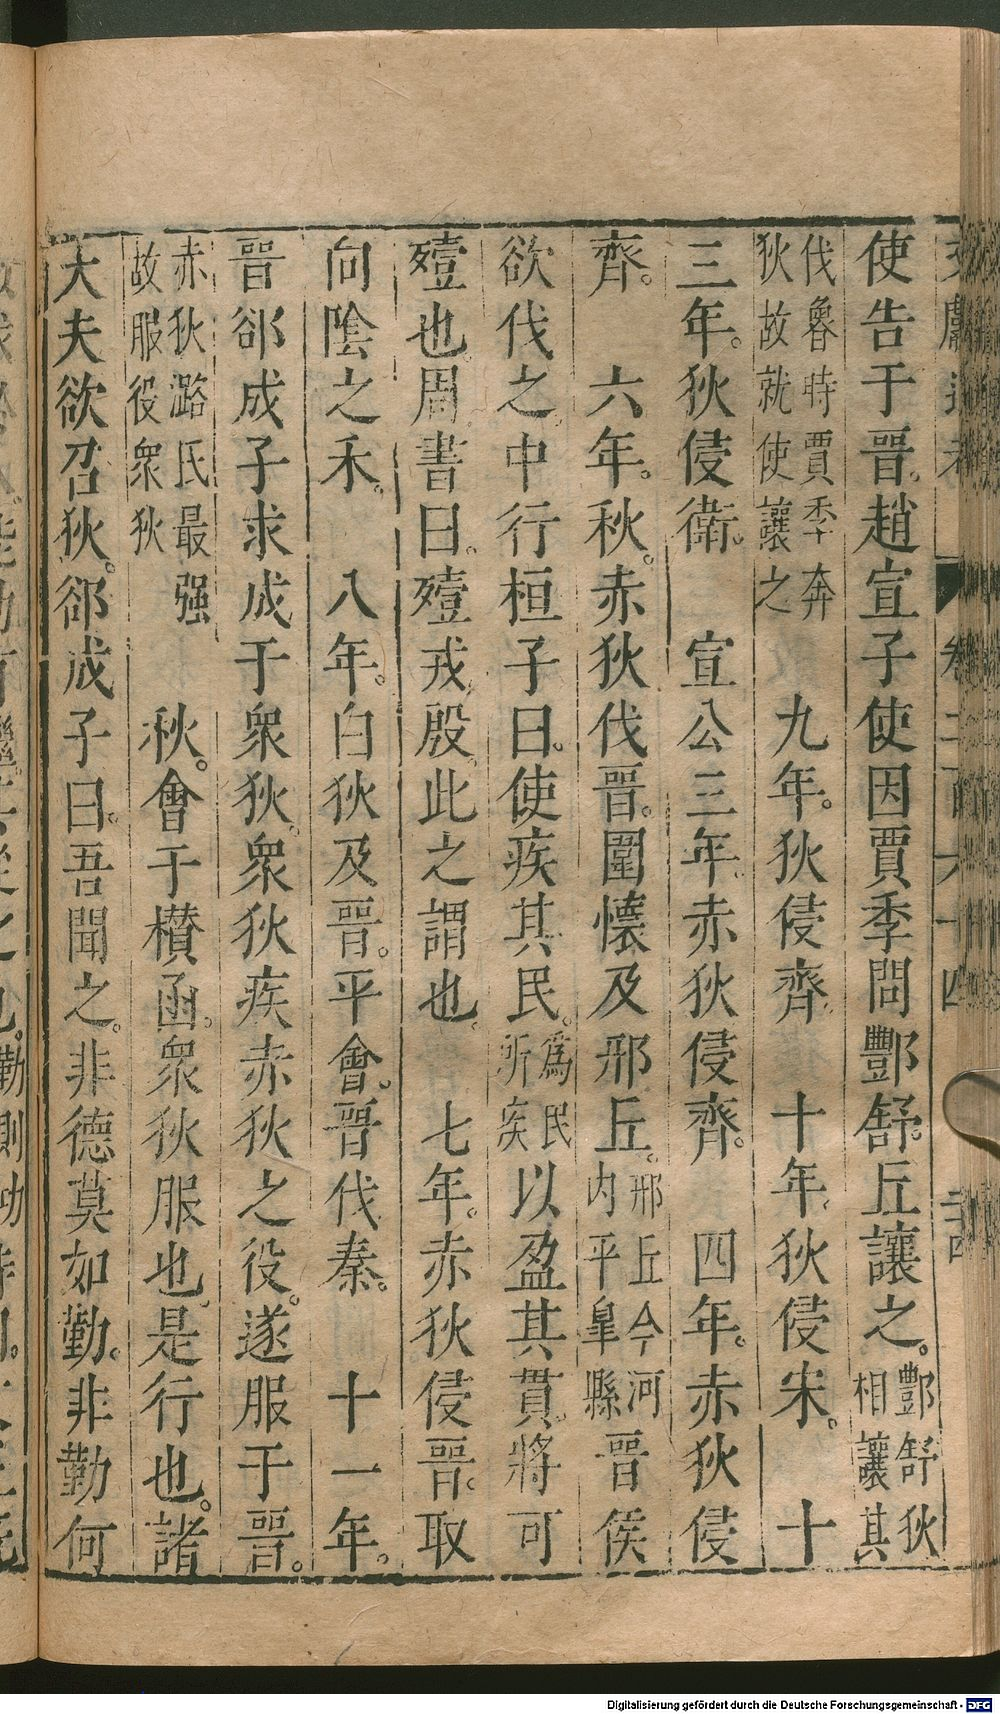 使告于晋。趙宣子使因賈季問酆舒。且讓之。酆舒狄相讓其
伐魯時賈季奔狄故就使讓之　九年。狄侵齊　十年。狄侵宋。　十
三年。狄侵衛。　宣公三年。赤狄侵齊。　四年。赤狄侵
齊。　六年。秋。赤狄伐晋。圍懷及邢丘。邢丘今河内平皐縣晋侯
欲伐之中行桓子曰。使疾其民。爲民所疾以盈其貫。將可
殪也。周書曰。殪戎殷。此之謂也　七年。赤狄侵晋。取
向陰之禾。　八年。白狄及晋。平會。晋伐秦。　十一年。
晋郤成子求成于衆狄。衆狄疾赤狄之役。遂服于晋。
赤狄潞氏最强故服役衆狄　秋。會于欑函。衆狄服也。是行也。諸
大夫欲召狄。郤成子曰。吾聞之。非德莫如勤。非勤何
Digitalisierung gefördert durch die Deutsche Forschungsgemeinschaft - DFG